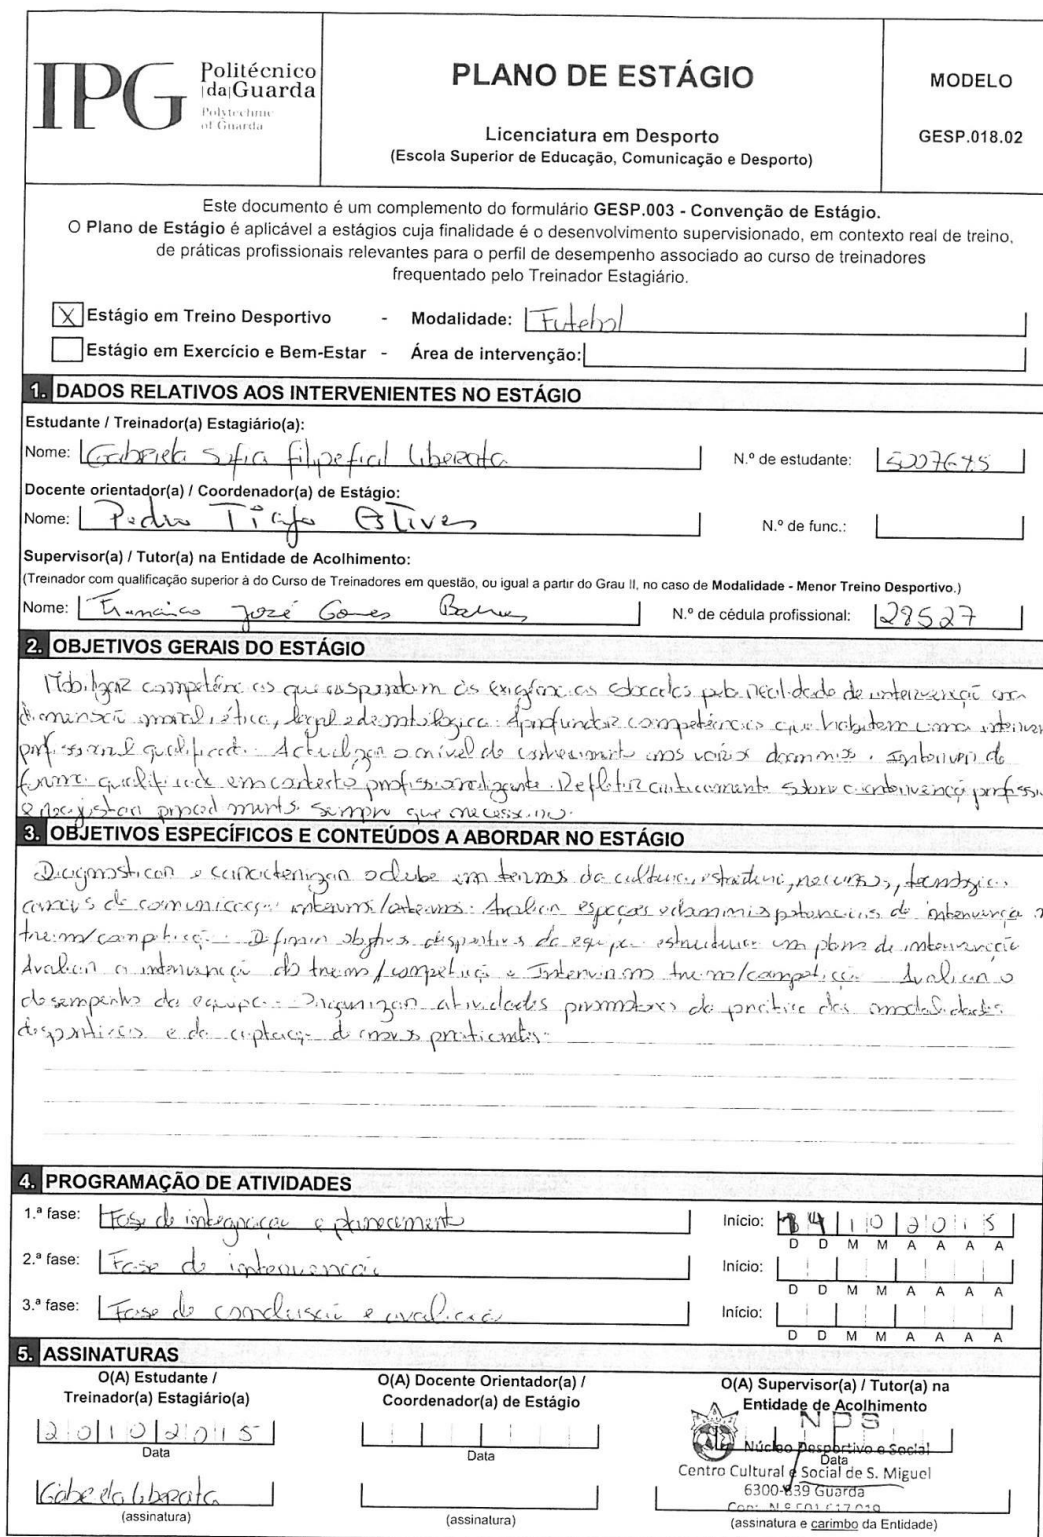 IPG Politécnico
|da|Guarda
Polytechnic
of Guarda
PLANO DE ESTÁGIO
Licenciatura em Desporto
(Escola Superior de Educação, Comunicação e Desporto)
MODELO
GESP.018.02
Este documento é um complemento do formulário GESP.003 - Convenção de Estágio.
O Plano de Estágio é aplicável a estágios cuja finalidade é o desenvolvimento supervisionado, em contexto real de treino,
de práticas profissionais relevantes para o perfil de desempenho associado ao curso de treinadores
frequentado pelo Treinador Estagiário.
X Estágio em Treino Desportivo - Modalidade: Futebol
Estágio em Exercício e Bem-Estar - Área de intervenção:
1. DADOS RELATIVOS AOS INTERVENIENTES NO ESTÁGIO
Estudante / Treinador(a) Estagiário(a):
Nome: Gabriela Sofia Liberata N.º de estudante:
Docente orientador(a) / Coordenador(a) de Estágio:
Nome: Pedro Tiago Esteves N.º de func.:
Supervisor(a) / Tutor(a) na Entidade de Acolhimento:
(Treinador com qualificação superior à do Curso de Treinadores em questão, ou igual a partir do Grau II, no caso de Modalidade - Menor Treino Desportivo.)
Nome: Francisco José Gomes N.º de cédula profissional: 28527
2. OBJETIVOS GERAIS DO ESTÁGIO
Mobilizar competências que respondam às exigências colocadas pela realidade de intervenção
dimensão moral, ética, legal e deontológica. Aprofundar competências que habilitem uma
profissional qualificada. Actualizar o nível de conhecimento nos vários domínios. Intervir de
forma qualificada em contexto profissionalizante. Refletir criticamente sobre a intervenção
e reajustar procedimentos sempre que necessário.
3. OBJETIVOS ESPECÍFICOS E CONTEÚDOS A ABORDAR NO ESTÁGIO
Diagnosticar e caracterizar o clube em termos da cultura, estrutura, recursos, tecnologias
canais de comunicação internos/externos. Analisar espaços e domínios potenciais de intervenção
treino/competição. Definir objetivos desportivos da equipa estruturar um plano de intervenção
Avaliar a intervenção do treino/competição e Intervir no treino/competição. Avaliar o
desempenho da equipa. Organizar atividades promotoras da prática das modalidades
desportivas e da captação de novos praticantes.
4. PROGRAMAÇÃO DE ATIVIDADES
1.ª fase: Fase de integração e planeamento Início: 10 2015
D D M M A A A A
2.ª fase: Fase de intervenção Início:
D D M M A A A A
3.ª fase: Fase de conclusão e avaliação Início:
D D M M A A A A
5. ASSINATURAS
O(A) Estudante /
Treinador(a) Estagiário(a)
2 0 1 0 2 0 1 5
Data
Gabriela Liberata
(assinatura)
O(A) Docente Orientador(a) /
Coordenador(a) de Estágio
Data
(assinatura)
O(A) Supervisor(a) / Tutor(a) na
Entidade de Acolhimento
NDS
Núcleo Desportivo e Social
Data
Centro Cultural e Social de S. Miguel
6300-839 Guarda
(assinatura e carimbo da Entidade)